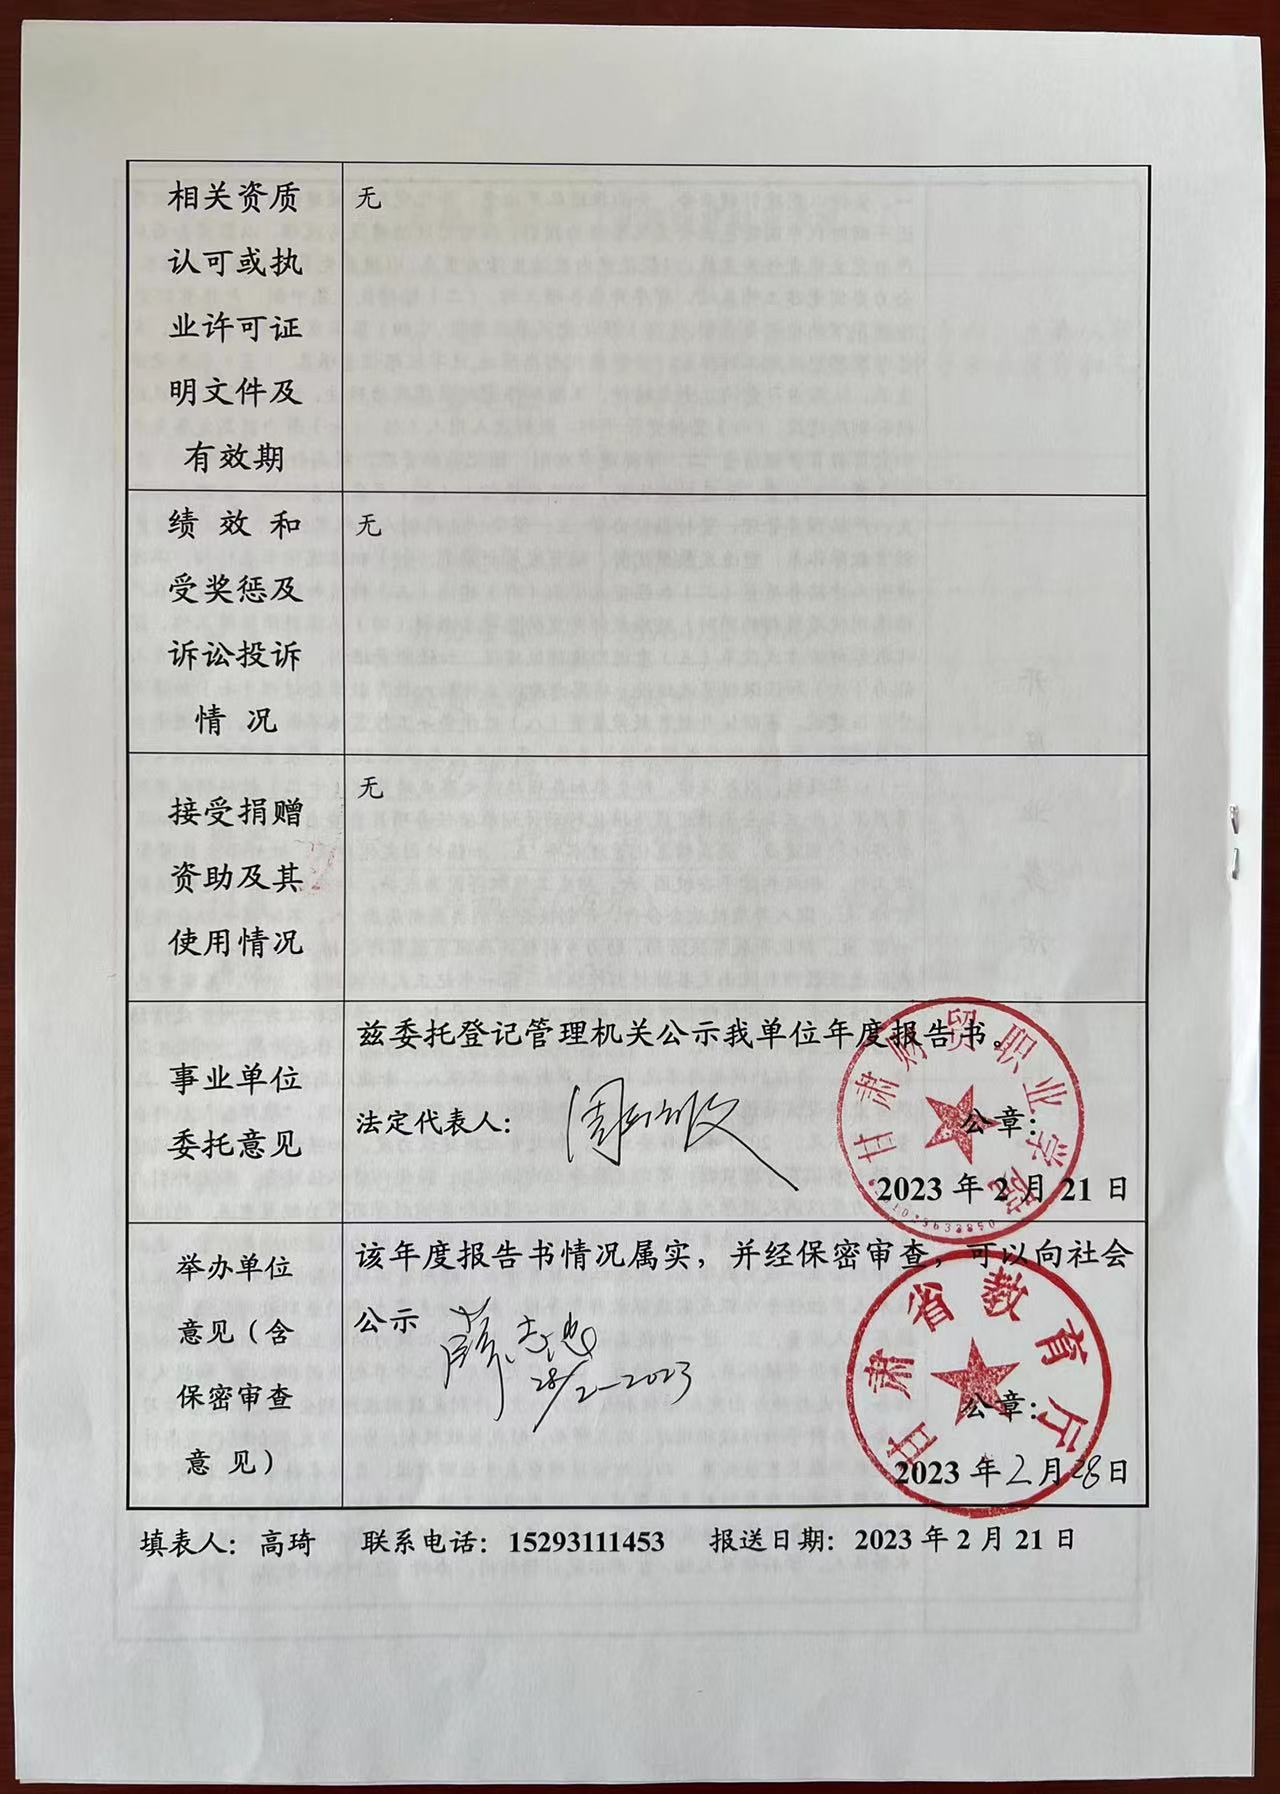 相关资质
认可或执
业许可证
明文件及
有效期
无
绩 效 和
受奖惩及
诉讼投诉
情 况
无
接受捐赠
资助及其
使用情况
无
事业单位
委托意见
兹委托登记管理机关公示我单位年度报告书。
法定代表人：
公章：
2023 年 2 月 21 日
甘肃财贸职业学院
举办单位
意见（含
保密审查
意 见）
该年度报告书情况属实，并经保密审查，可以向社会
公示
薛志忠
28/2-2023
公章：
2023 年 2 月 28 日
甘肃省教育厅
填表人：高琦 联系电话：15293111453 报送日期：2023 年 2 月 21 日